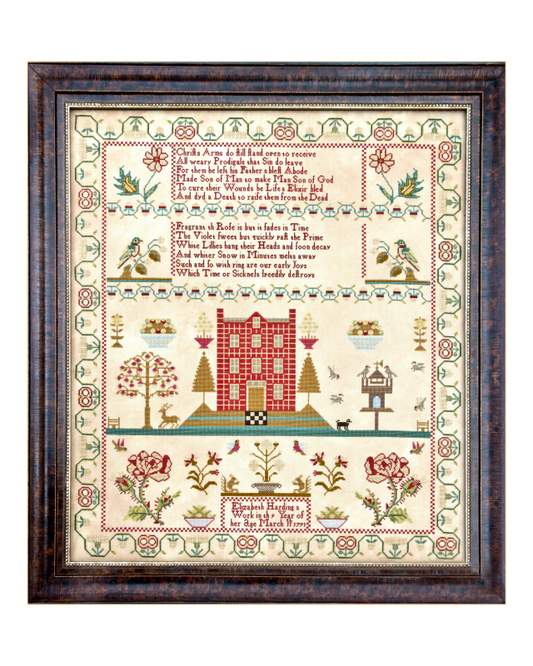 Christs Arms do still stand open to receive
All weary Prodigals that Sin do leave
For them he left his Father s blest Abode
Made Son of Man to make Man Son of God
To cure their Wounds he Life s Elixir bled
And dyd a Death to raise them from the Dead
Fragrant th Rose is but it fades in Time
The Violet sweet but quickly past the Prime
White Lillies hang their Heads and soon decay
And whiter Snow in Minutes melts away
Such and so with ring are our early Joys
Which Time or Sickness speedily destroys
Elizabeth Harding s
Work in th 7 Year of
her Age March